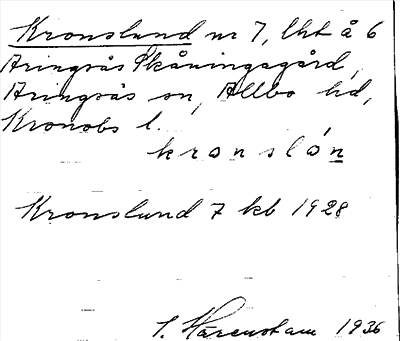 Kronslund nr 7, lht å 6
Aringsås Skåningsgård,
Aringsås sn, Allbo hd,
Kronobs l.
kronslón
Kronslund 7 kb 1928
S. Härenstam 1936